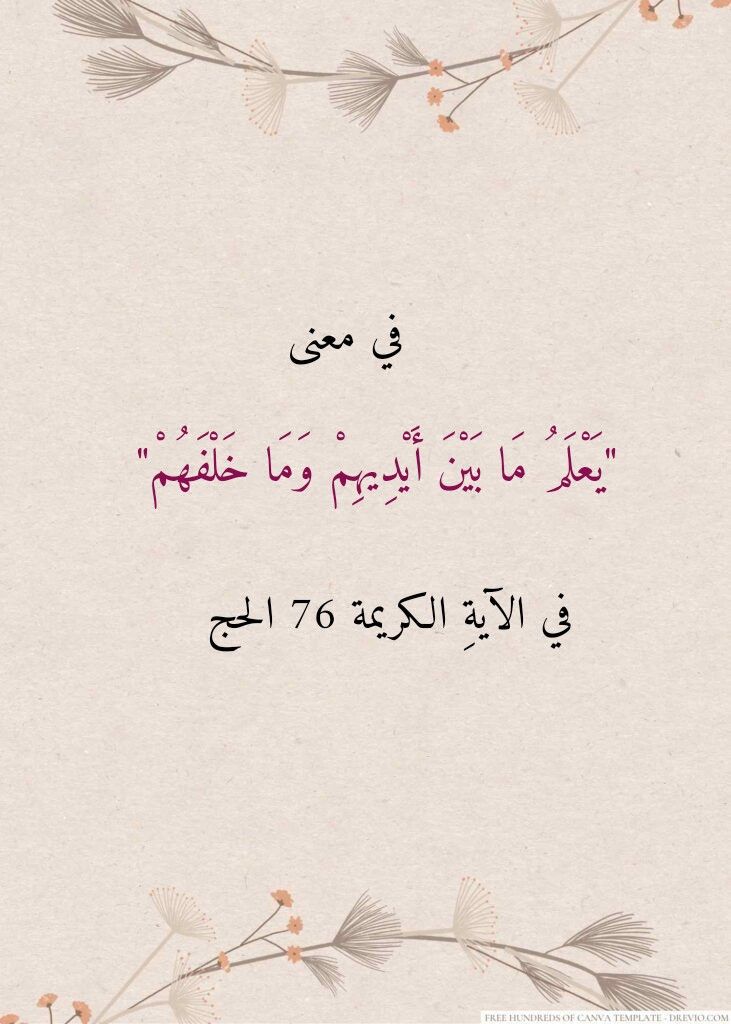 في معنى
"يَعْلَمُ مَا بَيْنَ أَيْدِيهِمْ وَمَا خَلْفَهُمْ"
في الآيةِ الكريمة 76 الحج
FREE HUNDREDS OF CANVA TEMPLATE - DREVIO.COM